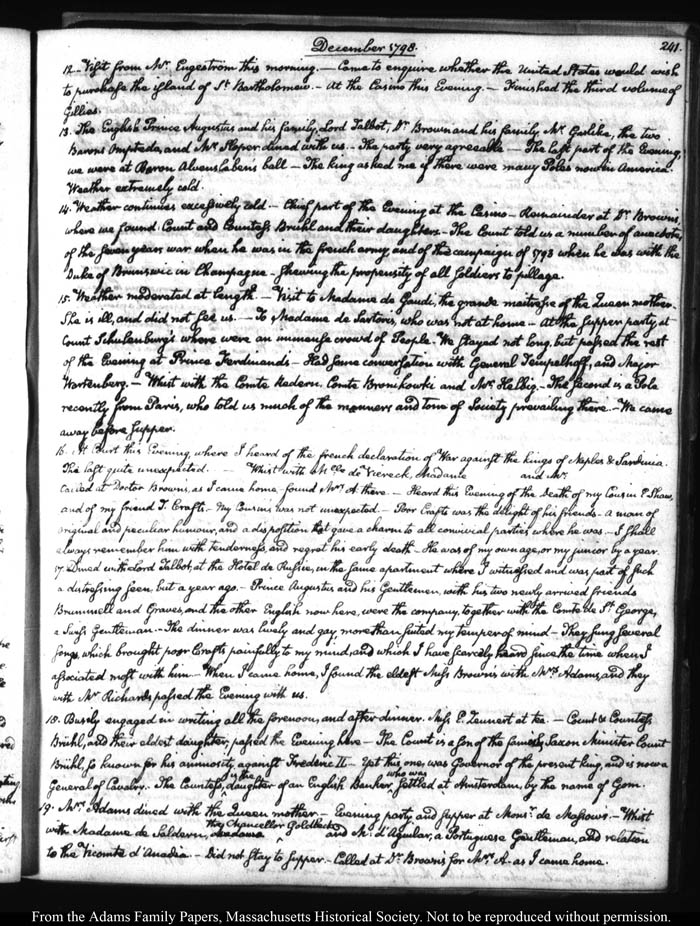 December 1798.
241.
12. Visit from Mr. Engeström this morning. — Came to enquire whether the United States would wish
to purchase the island of St. Bartholomew. — At the Casino this Evening. — Finished the third volume of
Gillies.
13. The English Prince Augustus and his family, Lord Talbot, Dr. Brown and his family, Mr. Garlike, the two
Barons Ompteda, and Mr. Sloper dined with us. — The party very agreeable — The last part of the Evening,
we were at Baron Alvensleben's ball — The king asked me if there were many Poles now in America.
Weather extremely cold.
14. Weather continues excessively cold — Chief part of the Evening at the Casino — Remainder at Dr. Browns,
where we found Count and Countess Brühl and their daughters. — The Count told us a number of anecdotes,
of the seven years war when he was in the french army, and of the campaign of 1793 when he was with the
Duke of Brunswic in Champagne — shewing the propensity of all soldiers to pillage.
15. Weather moderated at length — Visit to Madame de Gaudi, the grande maitresse of the Queen mother.
She is ill, and did not see us. — To Madame de Sartoris, who was not at home — At the supper party at
Count Schulenburg's where were an immense crowd of People. We stayed not long, but passed the rest
of the Evening at Prince Ferdinand's — Had some conversation with General Tempelhoff, and Major
Wartenberg. — Whist with the Comte Kedern, Comte Bronikowki and Mrs. Helbig. — The second is a Pole
recently from Paris, who told us much of the manners and tone of Society prevailing there. — We came
away before supper.
16. At Court this Evening, where I heard of the french declaration of War against the kings of Naples & Sardinia.
The last quite unexpected. — Whist with Mlle. de Viereck, Madame and Mr.
Called at Doctor Browns, as I came home, found Mrs. A. there. — Heard this Evening of the Death of my Cousin Shaw,
and of my friend T. Crafts. My Cousins was not unexpected. — Poor Crafts was the delight of his friends. A man of
original and peculiar humour, and a disposition that gave a charm to all convivial parties where he was. — I shall
always remember him with tenderness, and regret his early death — He was of my own age, or my junior by a year.
17. Dined with Lord Talbot, at the Hotel de Russie, in the same apartment where I witnessed and was part of such
a distressing scene, but a year ago. — Prince Augustus and his Gentlemen, with his two newly arrived friends
Brummell and Graves, and the other English now here, were the company, together with the Comte de St. George,
a Swiss Gentleman. — The dinner was lively and gay, more than suited my temper of mind — They sung several
songs, which brought poor Crafts painfully to my mind, and which I have scarcely heard since the time when I
associated most with him — When I came home, I found the eldest Miss Browns with Mrs. Adams, and they
with Mr. Richards passed the Evening with us.
18. Busily engaged in writing all the forenoon, and after dinner. Miss E. Zeunert at tea. — Count & Countess
Brühl, and their eldest daughter, passed the Evening here — The Count is a son of the famous, Saxon Minister Count
Brühl, so known for his animosity, against Frederic II — Yet this one, was Governor of the present king, and is now a
General of Cavalry. The Countess, is the daughter of an English Banker, who was settled at Amsterdam, by the name of Gom.
19. Mrs. Adams dined with the Queen mother — Evening party, and supper at Monsr. de Massows. — Whist
with Madame de Saldern, the Chancellor Goldbeck, and M: d'Aguilar, a Portuguese Gentleman, and relation
to the Vicomte d'Anadia. — Did not stay to supper. — Called at Dr. Browns for Mrs. A. as I came home.
From the Adams Family Papers, Massachusetts Historical Society. Not to be reproduced without permission.